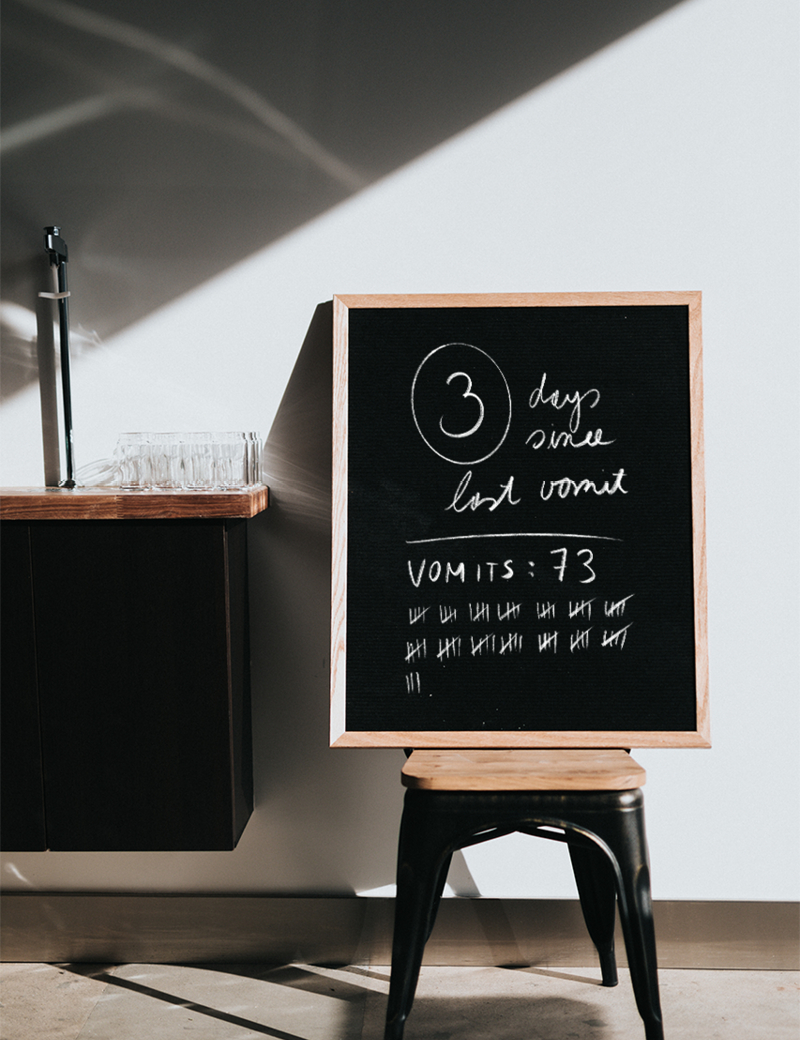 3 days
since
last vomit
VOMITS: 73